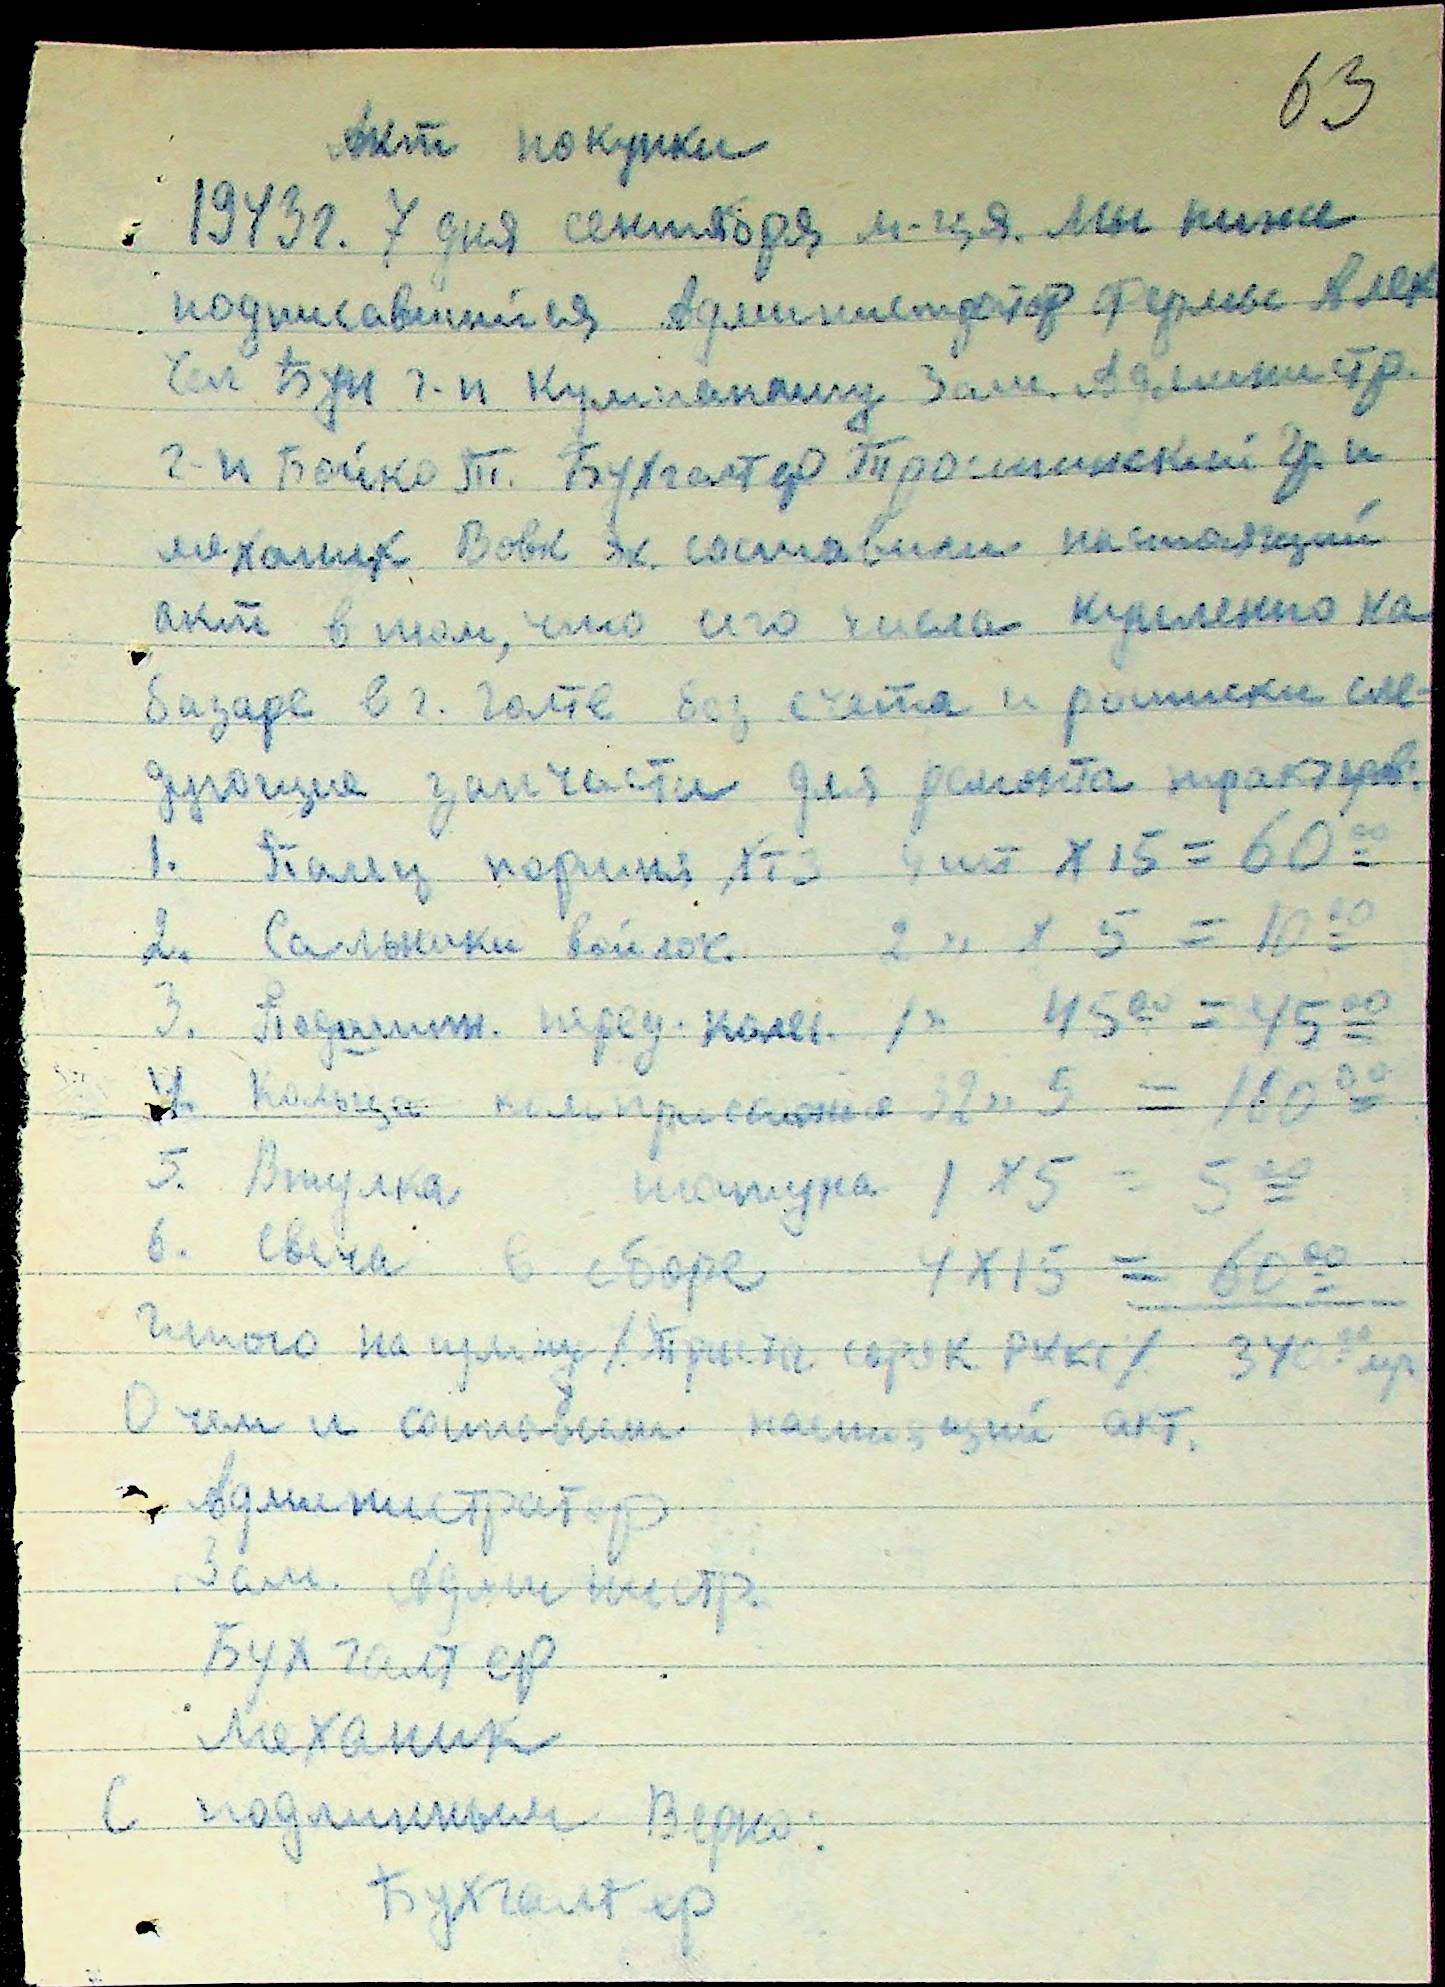 63
Акт покупки
1943г. 7 дня сентября м-ця. Мы ниже
подписавшийся Администратор Фермы Алек
чел Бун г-н Зам. Администр.
г-н Бойко Т. Бухгалтер Гр. и
механик Вовк Як. составили настоящий
акт в том, что сего числа купленно на
базаре в г. Голте без счета и росписки сле-
дующие запчасти для ремонта тракторов:
1. Палец поршня ХТЗ 4 шт х 15 = 60 00
2. Сальники войлоч. 2 " х 5 = 10 00
3. Подшипн. перед. колес. 1 " 45 00 = 45 00
4. Кольца компрессионые 32 " 5 = 160 00
5. Втулка шатуна 1 х 5 = 5 00
6. Свеча в сборе 4 х 15 = 60 00
Итого на сумму /Триста сорок РККС/ 340 00 мр.
О чем и составлен настоящий акт.
Администратор
Зам. Администр.
Бухгалтер
Механик
С подлинным Верно:
Бухгалтер